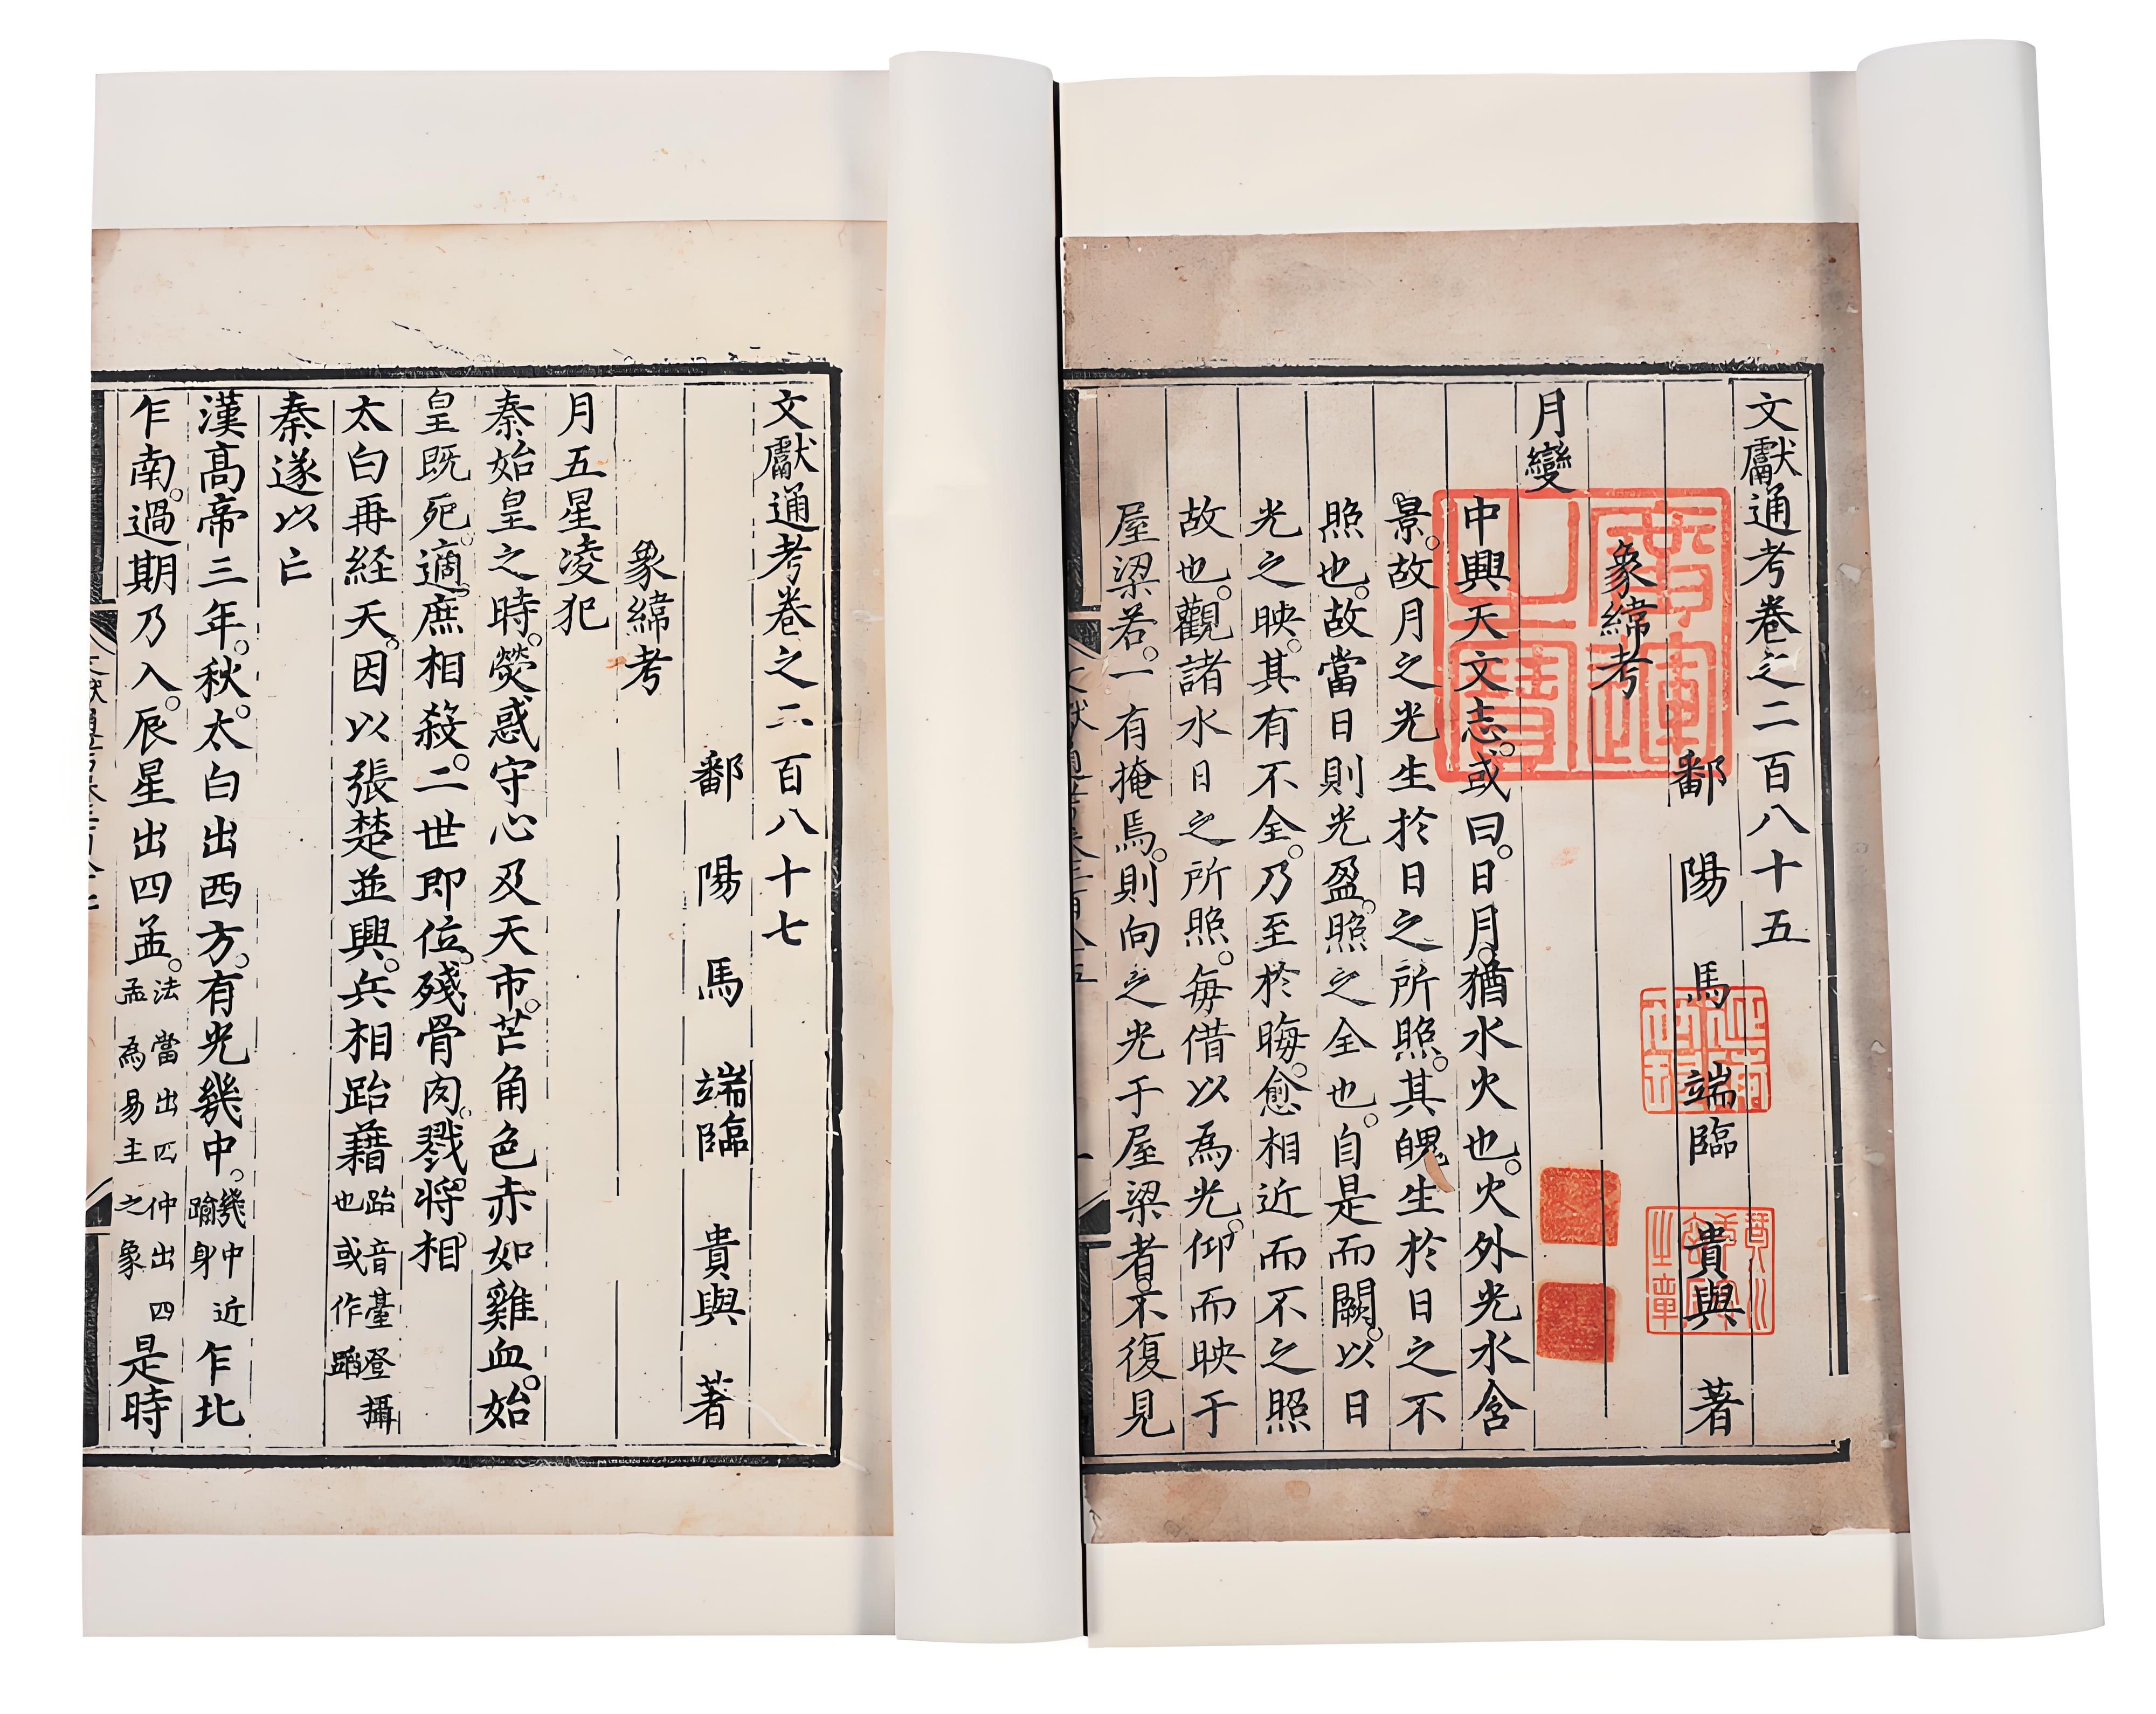 文獻通考卷之二百八十五
鄱陽馬端臨貴與著
象緯考
月變
中興天文志。或曰。日月。猶水火也。火外光水含
景。故月之光生於日之所照。其魄生於日之不
照也。故當日則光盈。照之全也。自是而闕。以日
光之映。其有不全。乃至於晦。愈相近而不之照
故也。觀諸水日之所照。每借以為光。仰而映于
屋梁若。一有掩焉。則向之光于屋梁者。不復見
文獻通考卷之二百八十七
鄱陽馬端臨貴與著
象緯考
月五星凌犯
秦始皇之時。熒惑守心及天市。芒角色赤如雞血。始
皇既死。適。庶相殺。二世即位。殘骨肉。戮。將相
太白再経天。因以張楚並興。兵相跆藉跆音臺登攝也或作蹈
秦遂以亡
漢高帝三年。秋。太白出西方。有光幾中。幾中近踰身乍北
乍南。過期乃入。辰星出四孟。法當出四仲出四孟為易主之象是時